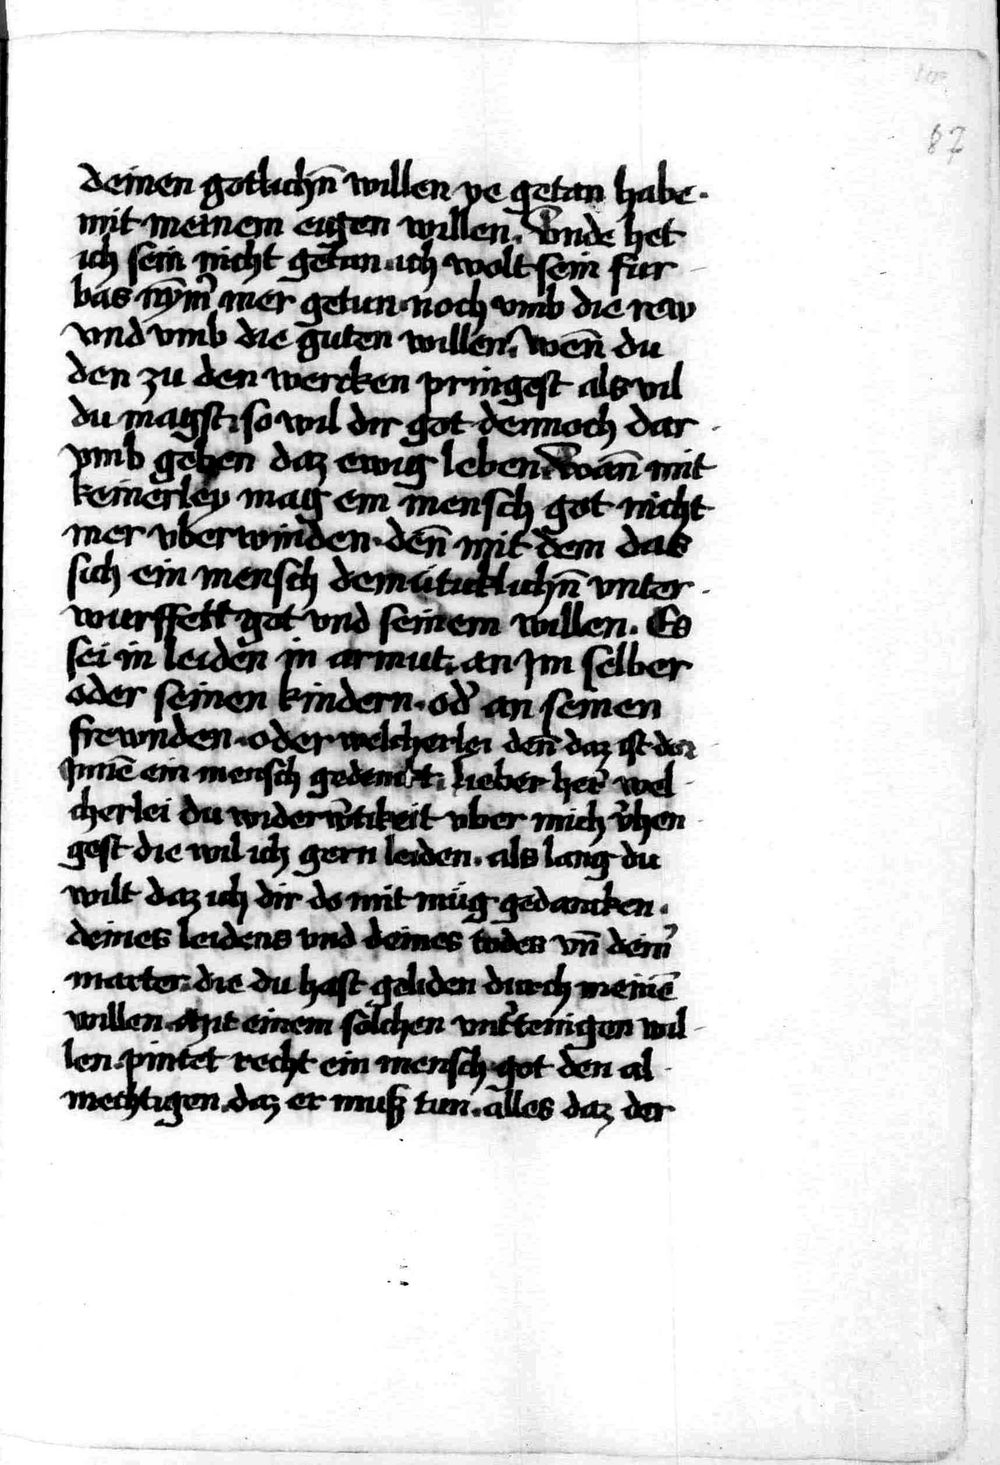 87
deinen gotlichn̄ willen ye getan habe.
mit meinem eigen willen. Vnde het
ich sein nicht getan. ich wolt sein fur
bas nym̄̉ mer getun. noch vmb die rew
vnd vmb die guten willen. wen̄ du
den zu den wercken pringest als vil
du magst. so wil dir got dennoch dar
vmb geben daz ewig leben. Wan̄ mit
keinerley mag ein mensch got nicht
mer vberwinden. den̄ mit dem das
sich ein mensch demütiklichn̄ vnter
wurffett got vnd seinem willen. Es
sei in leiden in armut. an Jm selber
oder seinen kindern. od̉ an seinen
frewnden. oder welcherlei den̄ daz ist dor
Jnnē ein mensch gedenckt. lieber her̉ wel
cherlei du widerw̉tikeit vber mich v̉hen
gest die wil ich gern leiden. als lang du
wilt daz ich dir do mit müg gedancken.
deines leidens vnd deines todes vn̄ dein̉
marter. die du hast geliden durch meinē
willen. Mit einem sölchen vnt̉tenigen wil
len. pintet recht ein mensch got den al
mechtigen. daz er muß tun. alles daz der